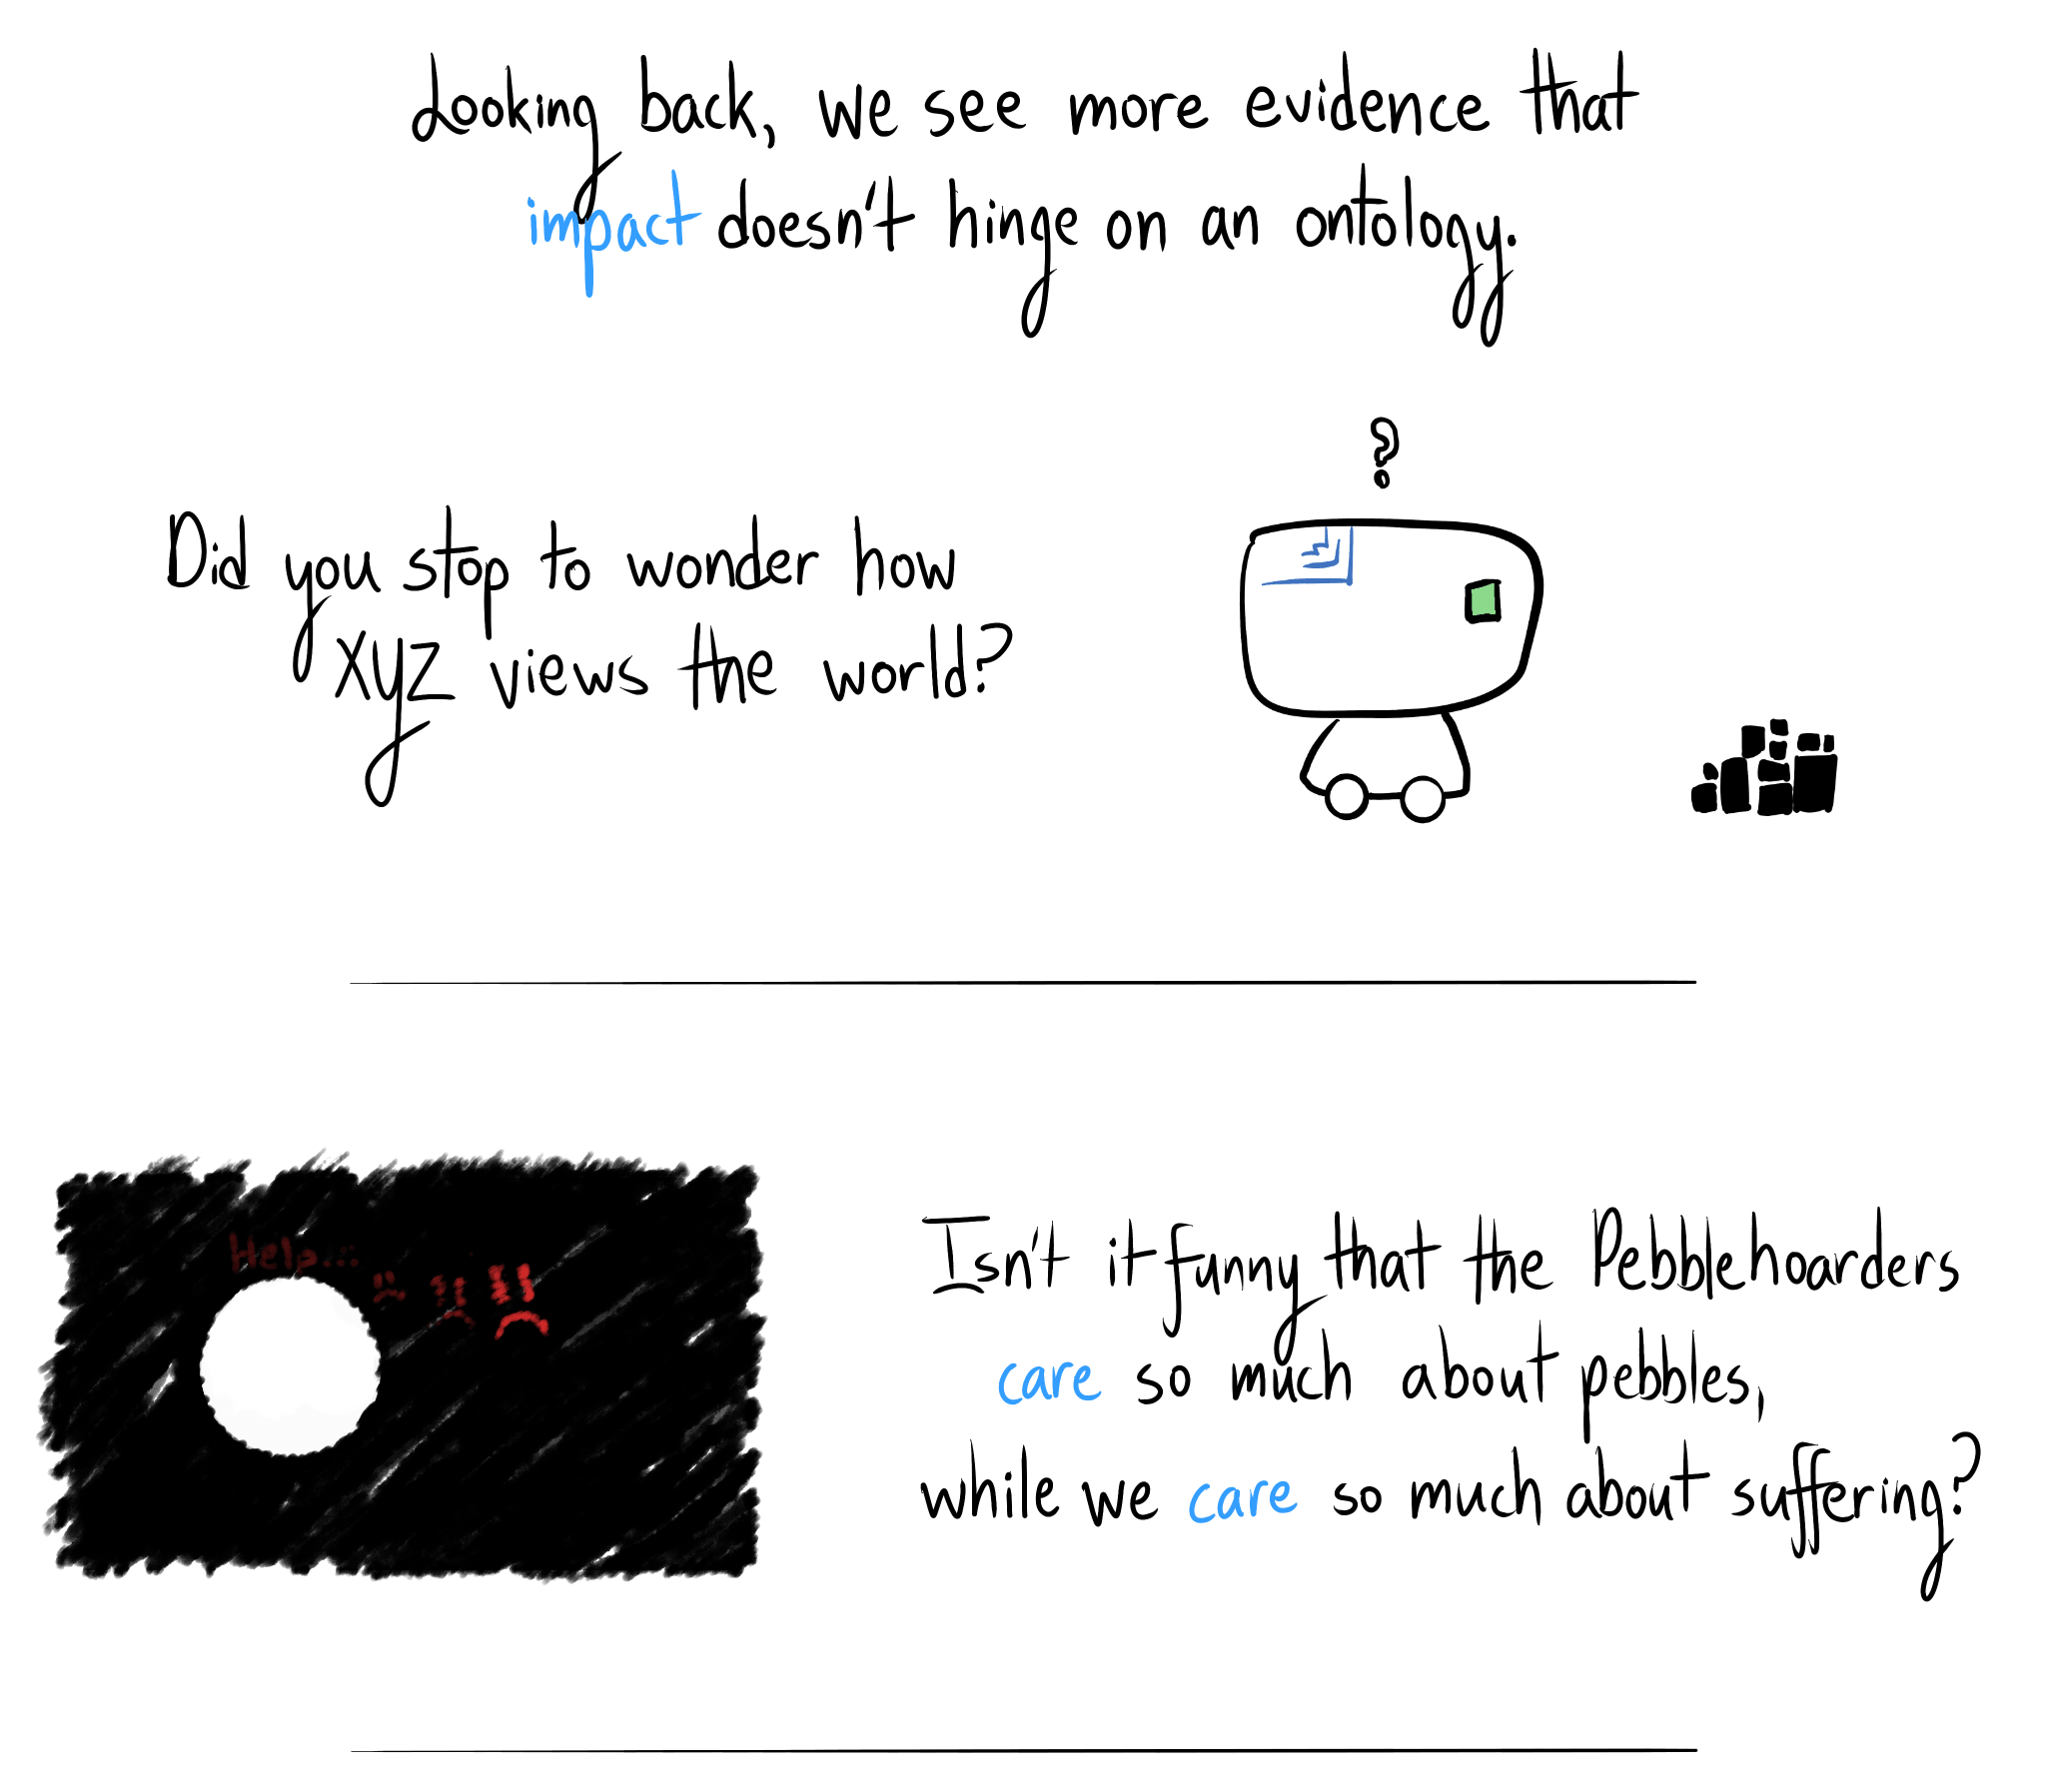 Looking back, we see more evidence that
impact doesn't hinge on an ontology.
?
Did you stop to wonder how
XYZ views the world?
Help...
Isn't it funny that the Pebblehoarders
care so much about pebbles,
while we care so much about suffering?